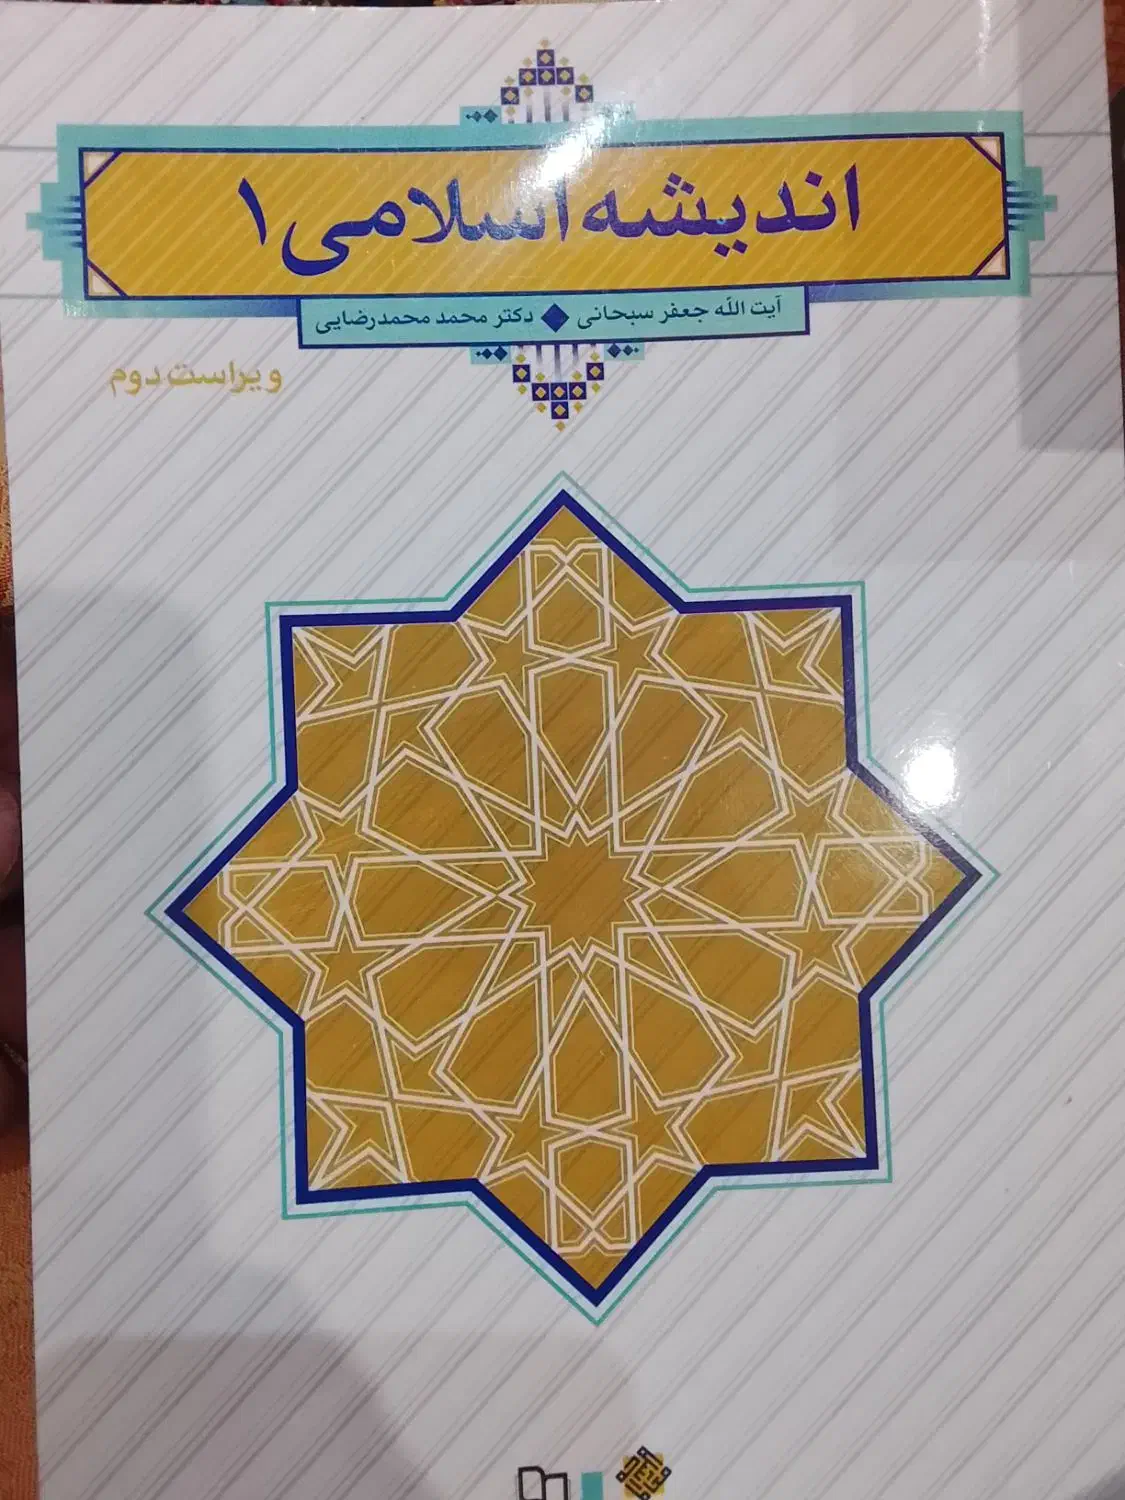 اندیشه اسلامی ۱
آیت الله جعفر سبحانی ◆ دکتر محمد محمدرضایی
ویراست دوم